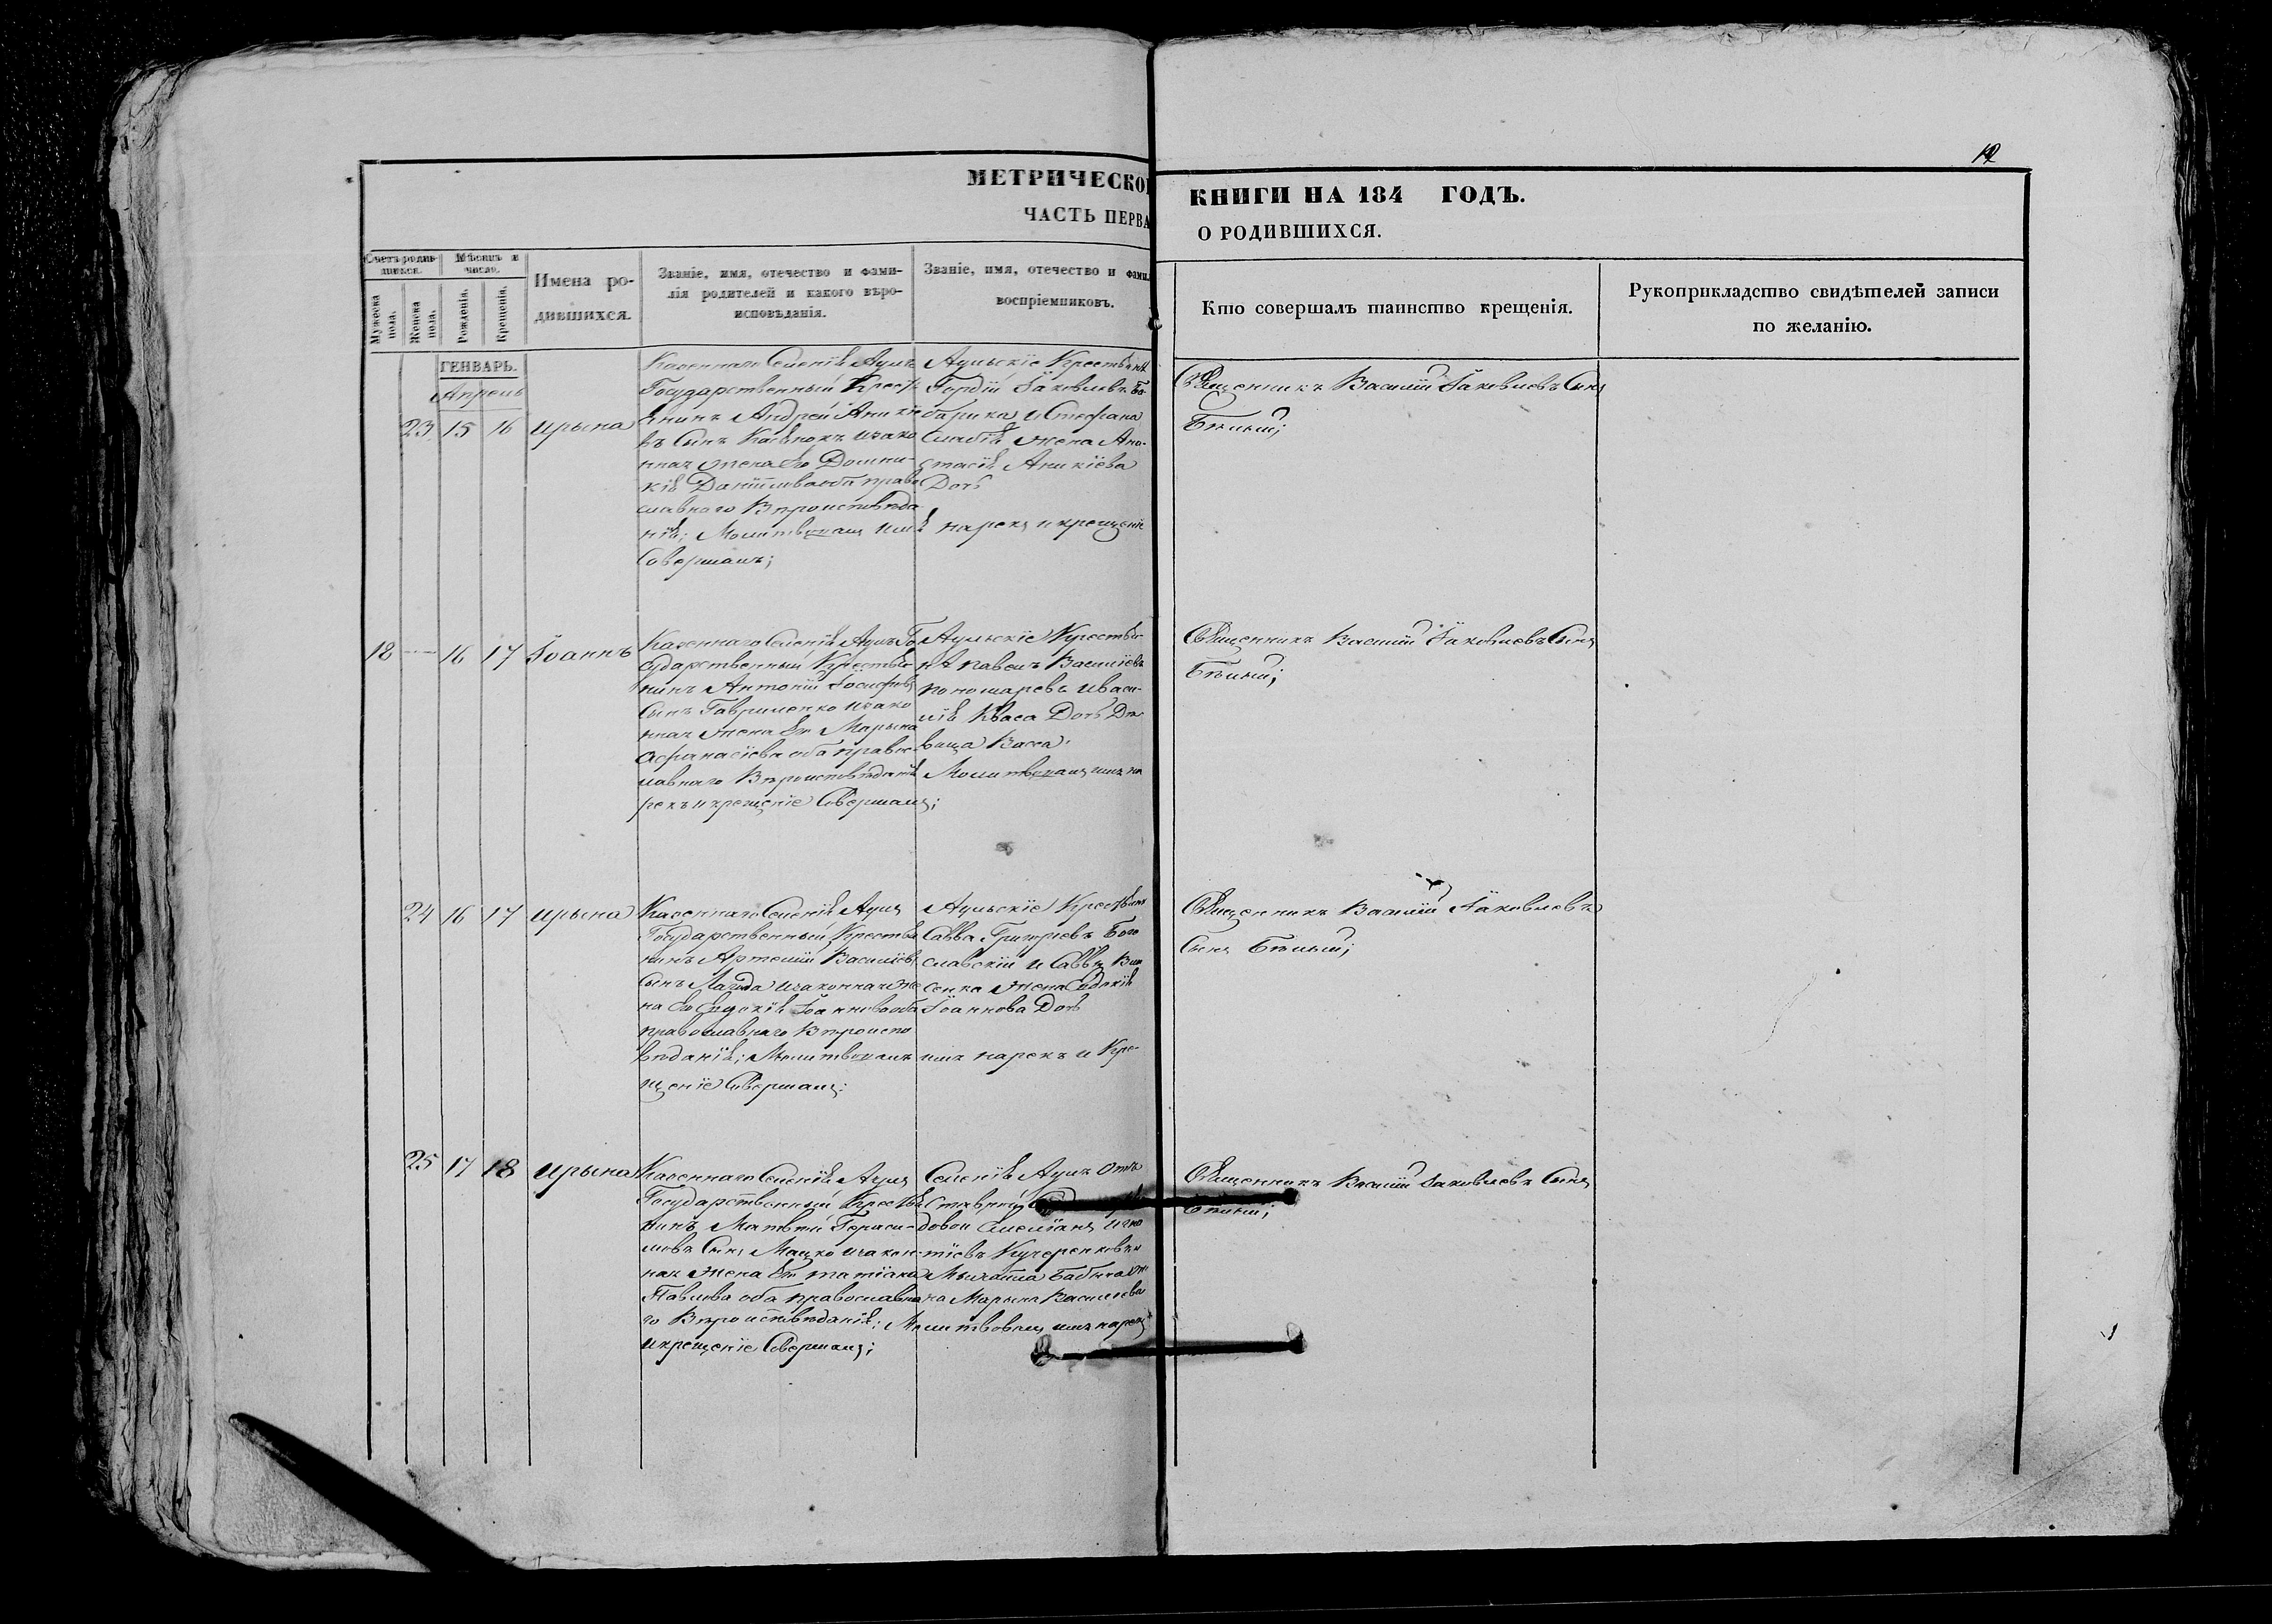 12
МЕТРИЧЕСКОЙ
КНИГИ НА 184 ГОДЪ.
ЧАСТЬ ПЕРВА
О РОДИВШИХСЯ.
Счетъ родив-
шихся.
Мѣсяцъ и
число.
Мужеска
пола.
Женска
пола.
Рожденія.
Крещенія.
Имена ро-
дившихся.
Званіе, имя, отечество и фами-
лія родителей и какого вѣро-
исповѣданія.
Званіе, имя, отечество и фамил
воспріемниковъ.
Кто совершалъ таинство крещенія.
Рукоприкладство свидѣтелей записи
по желанію.
ГЕНВАРЬ.
Апрель
23 15 16 Ирына
Казеннаго Селенія Аулъ
Государственный Крестя
нинъ Андрей Аникіе
въ Сынъ и зако
нная жена его Домни-
кія Даніілова оба право
славнаго Вѣроисповѣда
нія; Молитвовалъ имя нарекъ и крещеніе
Совершалъ;
Аульскіе Крестьяне
Гордій Іаковлевъ
и Стефана
жена Ана-
стасія Аникіева
Дочь
Священникъ Василій Іаковлевъ Сынъ
Бѣлый;
18 — 16 17 Іоаннъ
Казеннаго Селенія Аулъ Го
сударственный Крестья
нинъ Антоній Іосифовъ
Сынъ Гавриленко и зако
нная жена его Марына
Афанасіева оба правос-
лавнаго Вѣроисповѣданія Молитвовалъ имя на
рекъ и крещеніе Совершалъ;
Аульскіе Крестья
не Павелъ Василіевъ
Пономаревъ и Васи-
лія Кваса Дочь Дѣ-
вица Васса
Священникъ Василій Іаковлевъ Сынъ
Бѣлый;
24 16 17 Ирына
Казеннаго Селенія Аулъ
Государственный Крестья
нинъ Артемій Василіевъ
Сынъ и законная же
на его Евдокія Іоаннова оба
православнаго Вѣроиспо
вѣданія; Молитвовалъ имя нарекъ и Кре-
щеніе Совершалъ;
Аульскіе Крестьяне
Савва Григоріевъ Бого
славскій и Саввы
жена Евдокія
Іоаннова Дочь
Священникъ Василій Іаковлевъ
Сынъ Бѣлый;
25 17 18 Ирына
Казеннаго Селенія Аулъ
Государственный Крестья
нинъ Матвѣй Гераси-
мовъ Сынъ Мацко и закон-
ная жена его Татіана
Павлова оба православна
го Вѣроисповѣданія; Молитвовалъ имя нарекъ
и крещеніе Совершалъ;
Селенія Аулъ От
ставный
довой Емеліянъ Игна
тіевъ Кучеренковъ и
Михайла Бабича же
на Марына Василіева
Священникъ Василій Іаковлевъ Сынъ
Бѣлый;